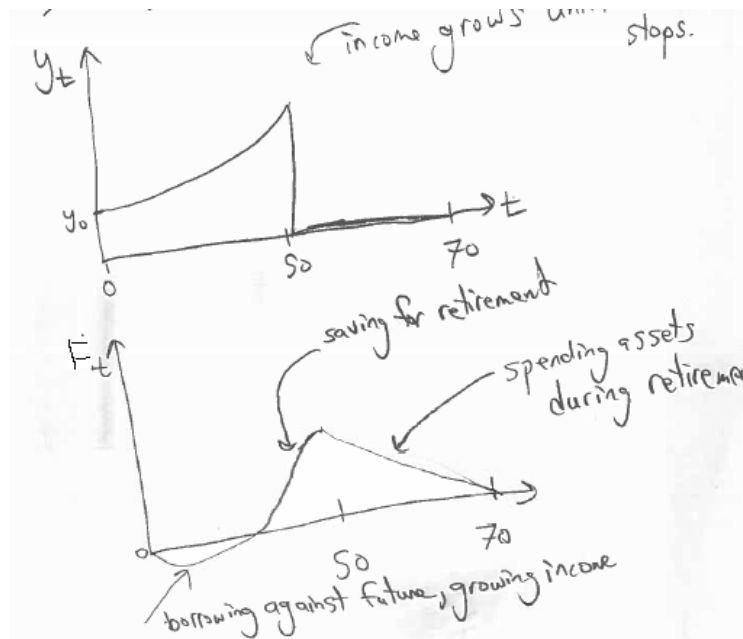 income grows
stops.
yt
y0
t
0
50
70
saving for retirement
Ft
spending assets
during retireme
0
50
70
borrowing against future, growing income